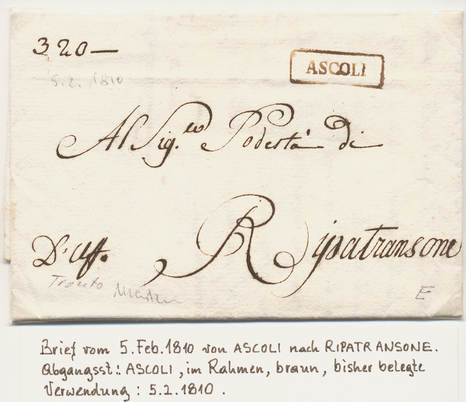 320—
ASCOLI
5.2.1810
Al Sig.re Podestà di
Ripatransone
D'Uff.
Tronto
E
Brief vom 5. Feb. 1810 von ASCOLI nach RIPATRANSONE.
Abgangsst.: ASCOLI, im Rahmen, braun, bisher belegte
Verwendung: 5.2.1810.